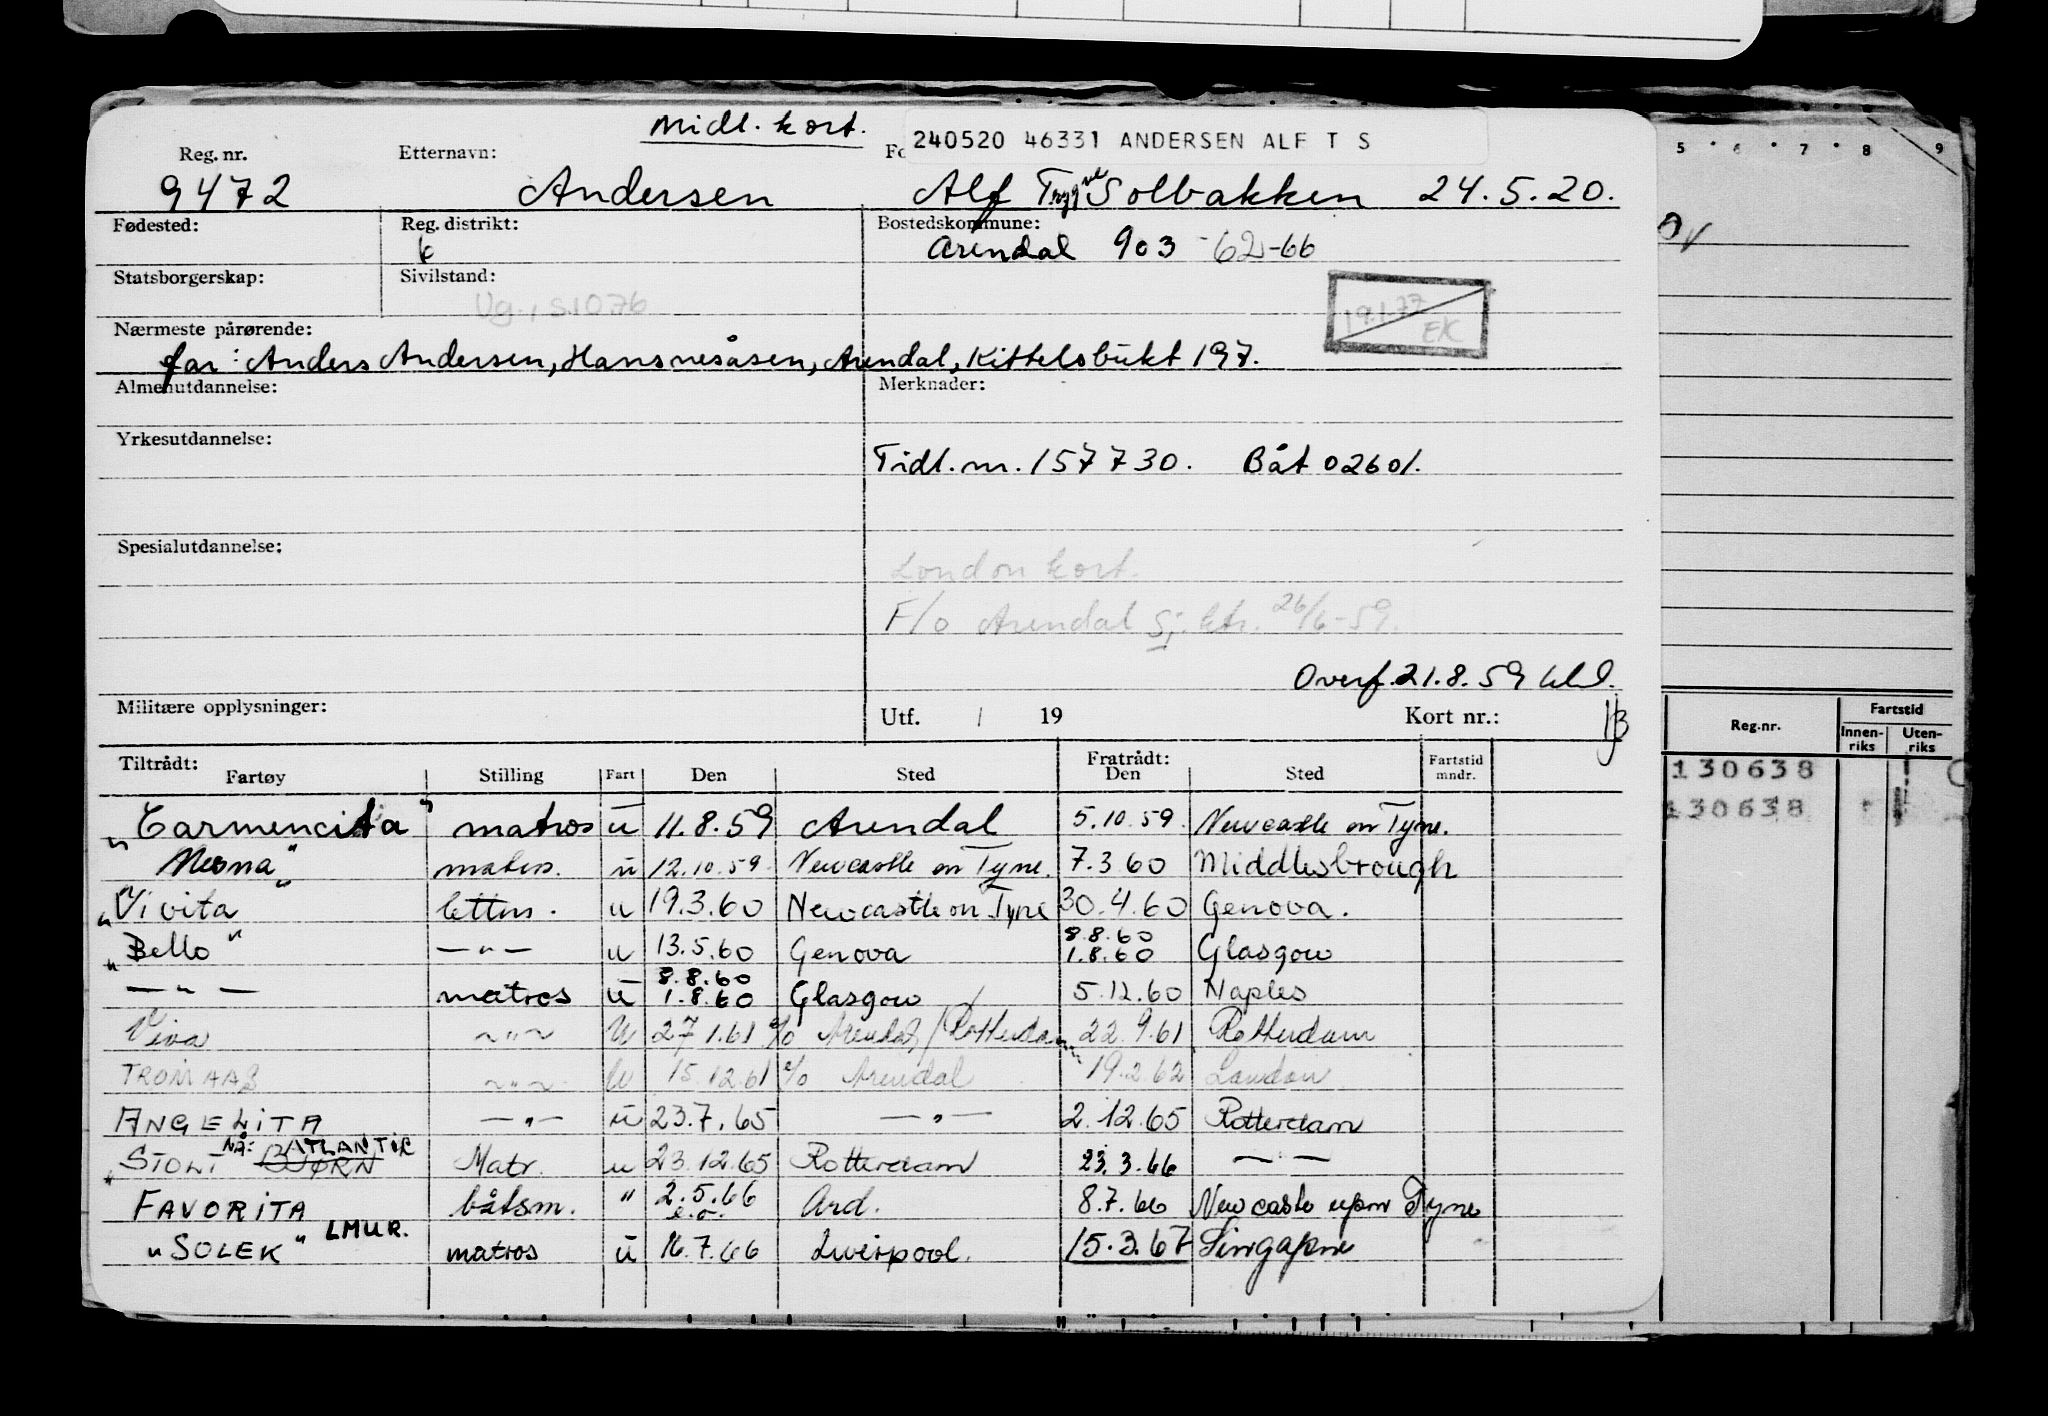 Midl. kort.
240520 46331 ANDERSEN ALF T S
Reg. nr. Etternavn: Fo
9472 Andersen Alf Trygve Solbakken 24.5.20.
Fødested: Reg. distrikt: Bostedskommune:
Arendal 903 -62-66
Statsborgerskap: Sivilstand:
Ug., s.1076
19.1.77
EK
Nærmeste pårørende:
far: Anders Andersen, Hansnesåsen, Arendal, Kittelsbukt 197.
Almenutdannelse: Merknader:
Yrkesutdannelse:
Tidl. nr. 157730. Båt 02601.
Spesialutdannelse:
London kort.
F/o Arendal Sj. ktr. 26/6-59.
Overf. 21.8.59
Militære opplysninger: Utf. / 19 Kort nr.:
Tiltrådt: Fartøy Stilling Fart Den Sted Fratrådt: Den Sted Fartstid mndr.
"Carmencita" matros u 11.8.59 Arendal 5.10.59. Newcastle on Tyne.
Mesna" matros. u 12.10.59. Newcastle on Tyne. 7.3.60 Middlesbrough
"Vivita" lettm. u 19.3.60 Newcastle on Tyne 30.4.60 Genova.
"Bello" — " — u 13.5.60 Genova 8.8.60 1.8.60 Glasgow
— " — matros u 8.8.60 1.8.60 Glasgow 5.12.60 Naples
Viva ~ " ~ u 27.1.61 e/o Arendal/Rotterdam 22.9.61 Rotterdam
TROMAAS ~ " ~ u 15.12.61 e/o Arendal 19.2.62 London
ANGELITA — " — u 23.7.65 — " — 2.12.65 Rotterdam
NÅ: ATLANTIC
"STOLT BJØRN Matr. u 23.12.65 Rotterdam 23.3.66 — " —
FAVORITA båtsm. " 2.5.66 e.o. Ard. 8.7.66 Newcastle upon Tyne
"SOLEK" LMUR. matros u 16.7.66 Liverpool. 15.3.67 Singapore
5 . 6 . 7 . 8 9
Reg.nr. Fartstid
Innenriks Utenriks
130638
130638